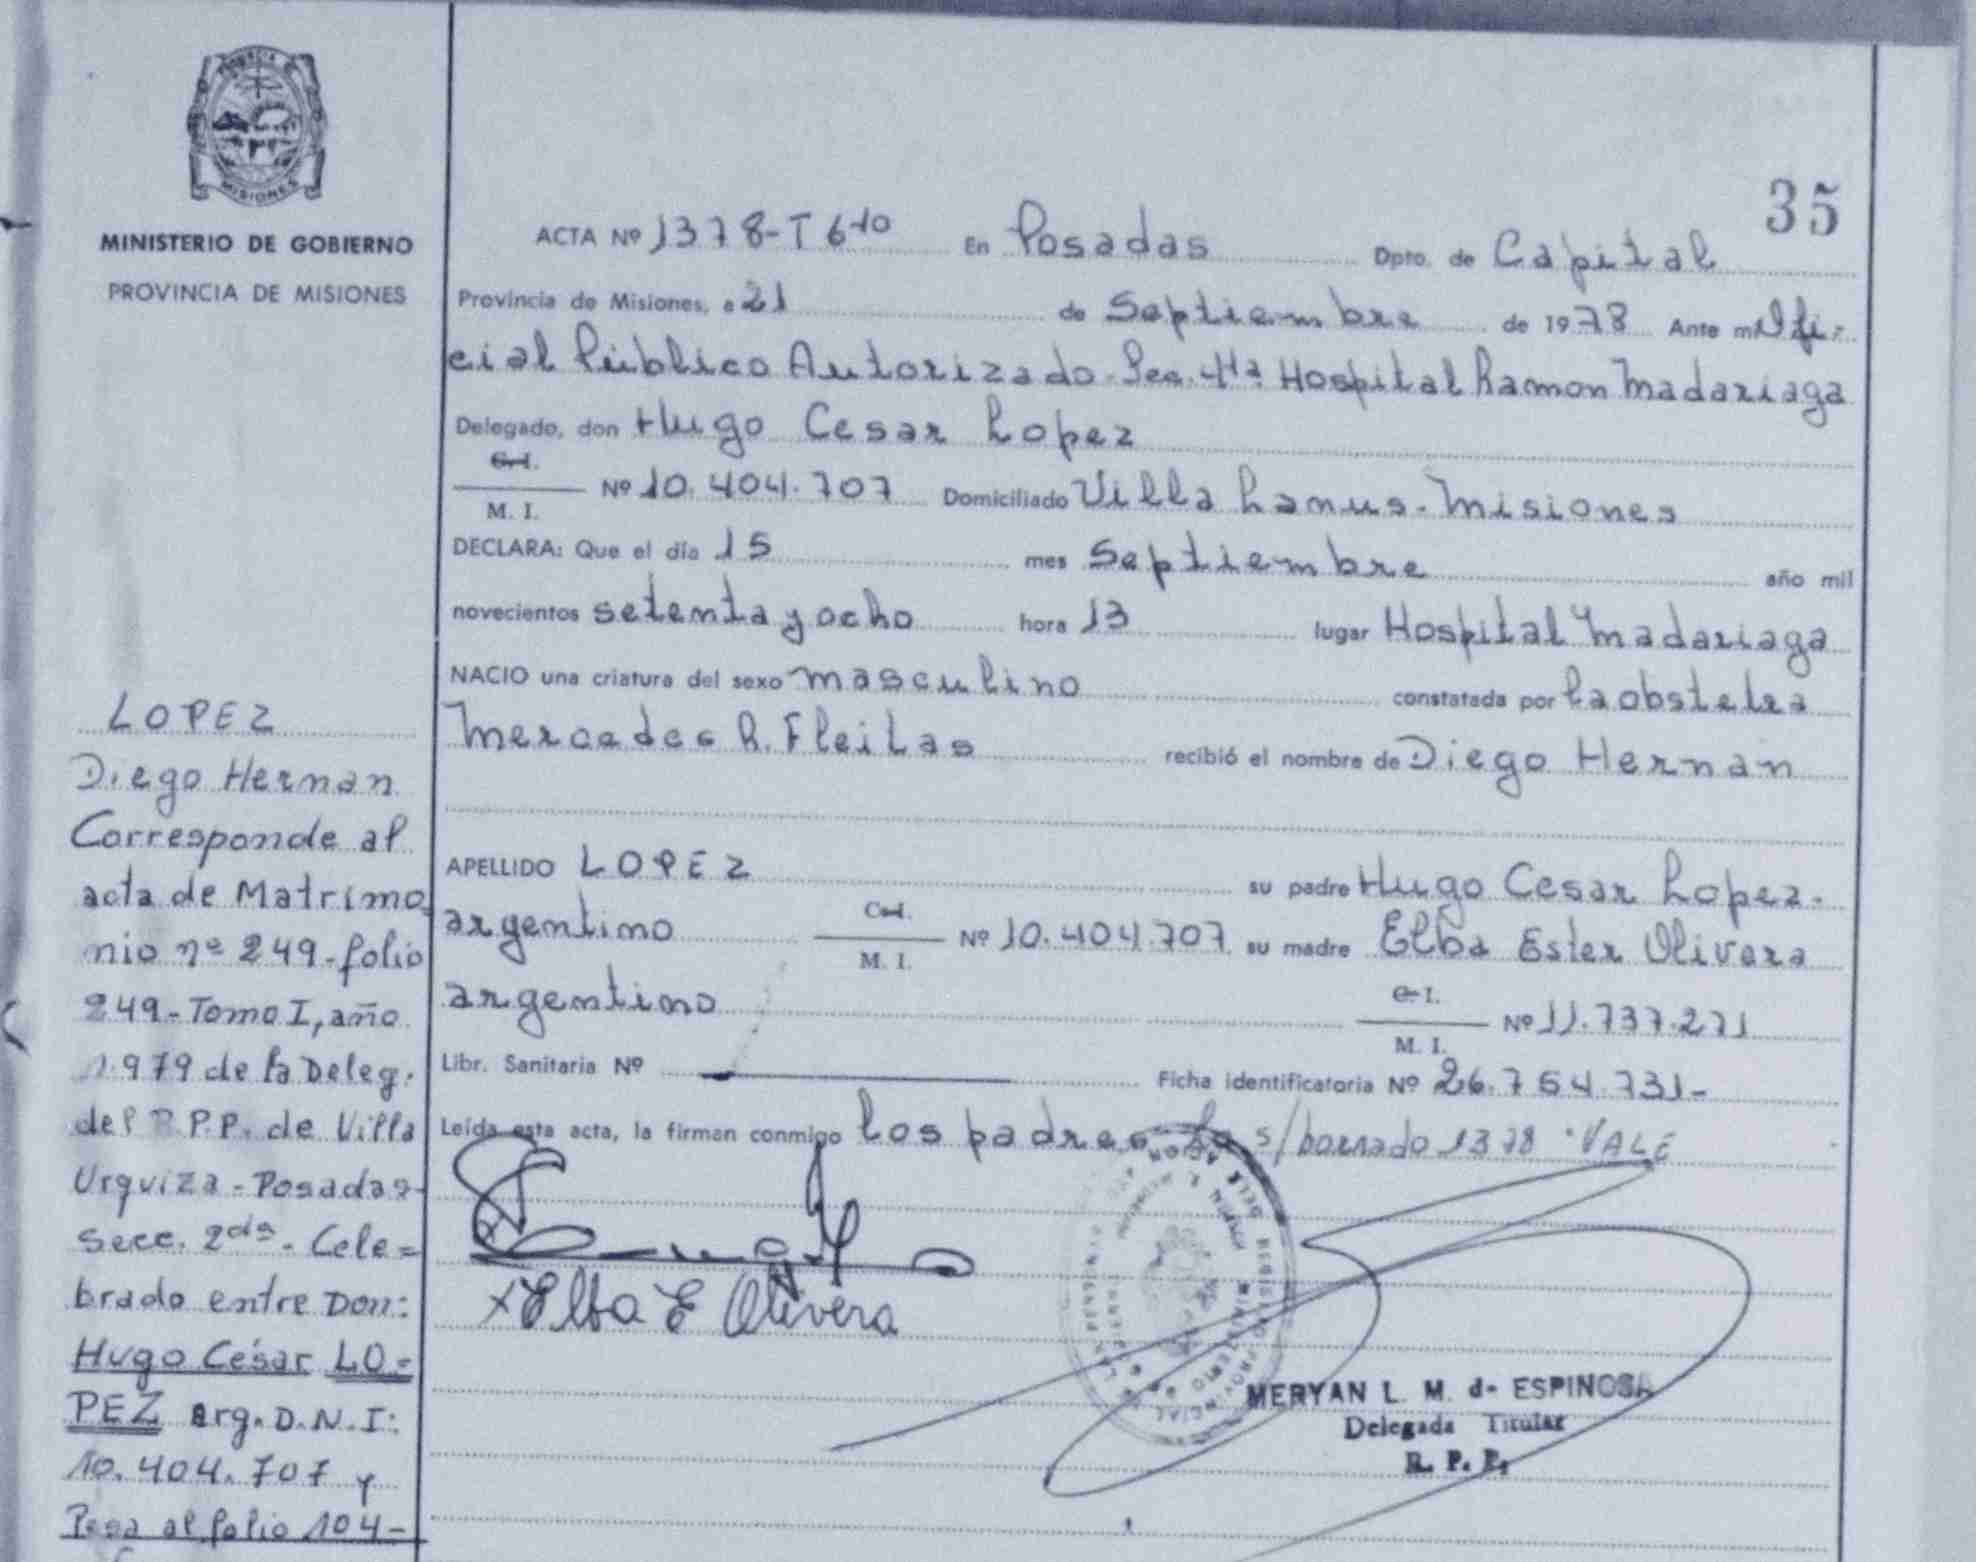 MISIONES
MINISTERIO DE GOBIERNO
PROVINCIA DE MISIONES
LOPEZ
Diego Hernan
Corresponde al
acta de Matrimo
nio nº 249-folio
249-Tomo I, año
1.979 de la Deleg.
del R.P.P. de Villa
Urquiza-Posadas-
Secc. 2da-. Cele=
brado entre Don:
Hugo César LO=
PEZ arg. D.N.I:
10.404.707 y
Pasa al folio 104-
35
ACTA Nº 1378-T 6-10 En Posadas Dpto. de Capital
Provincia de Misiones, a 21 de Septiembre de 1978 Ante mi Ofi-
cial Público Autorizado-Sec. 4ta Hospital Ramon Madariaga
Delegado, don Hugo Cesar Lopez
C.I.
M. I. Nº 10.404.707 Domiciliado Villa Lanus-Misiones
DECLARA: Que el día 15 mes Septiembre año mil
novecientos setenta y ocho hora 13 lugar Hospital Madariaga
NACIO una criatura del sexo masculino constatada por la obstetra
Mercedes R. Fleitas recibió el nombre de Diego Hernan
APELLIDO LOPEZ su padre Hugo Cesar Lopez-
argentino M. I. Nº 10.404.707 su madre Elba Ester Olivera
argentino C.I.
M. I. Nº 11.737.271
Libr. Sanitaria Nº Ficha identificatoria Nº 26.754.731-
Leída esta acta, la firman conmigo los padres s/borrado 1378 "VALE
x Elba E Olivera
MERYAN L. M. de ESPINOSA
Delegada Titular
R. P. P.